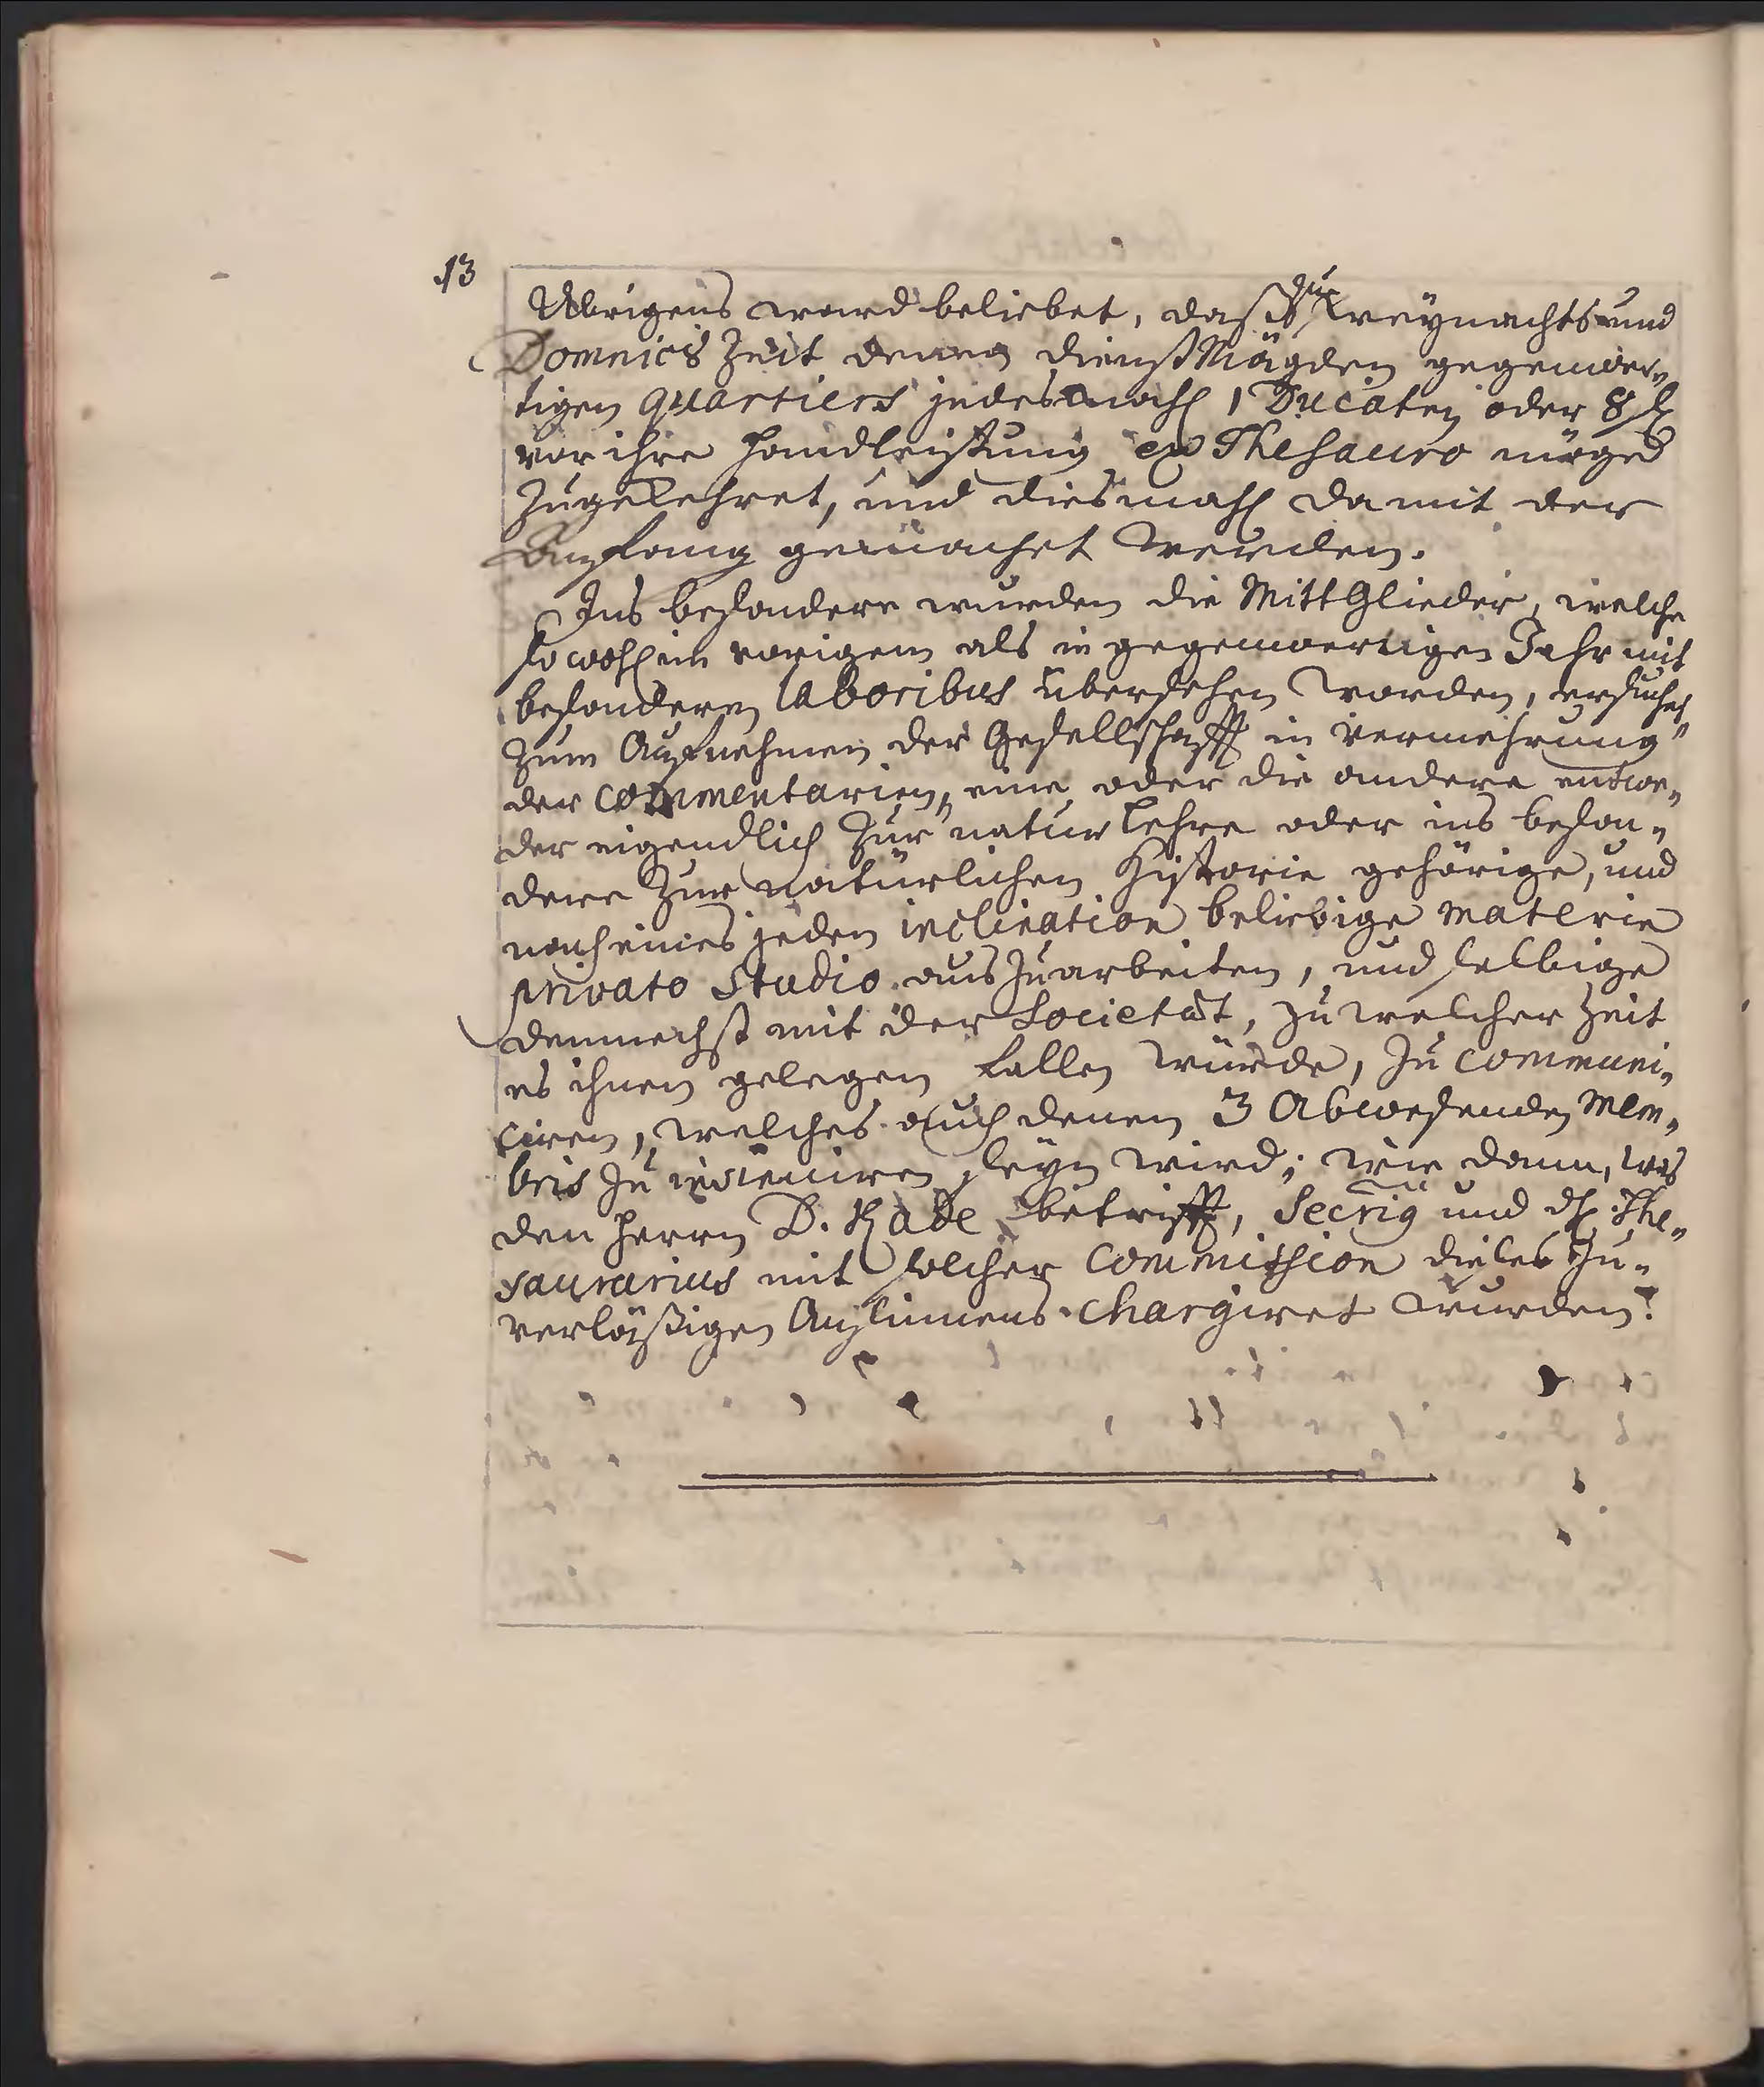 13
Ubrigens ward beliebet, daß zur weynachts und
Domnics Zeit denen dienstMägden gegenwer„
tigen quartiers jedesmahl 1 Ducaten oder 8 fl
vor ihre handleistung ex Thesauro möge
zugekehret, und diesmahl damit der
Anfang gemachet werden.
Ins besondere wurden die MittGlieder, welche
so wohl im vorigem als in gegenwertigen Jahr mit
besonderen laboribus übersehen worden, ersuchet
zum Aufnehmen der Gesellschafft in vermehrung
der commentarien, eine oder die andere entwe„
der eigendlich zur naturlehre oder ins beson„
dere zur natürlichen Historie gehörige, und
nach eines jeden inclination beliebige materie
privato studio auszuarbeiten, und selbige
demnechst mit der Societät, zu welcher Zeit
es ihnen gelegen fallen würde, zu communi„
ciren, welches auch denen 3 Abwesenden Mem„
bris zu insinuiren seyn wird; wie dann, was
den Herrn D. Kade betrifft, Secrig und dH The„
saurarius mit solcher Commission dieses zu„
verläßigen Ansinnens chargiret wurden.